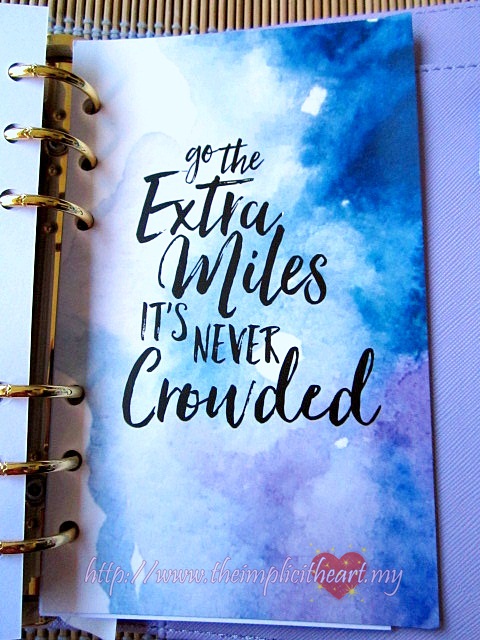 go the
Extra
Miles
IT'S NEVER
Crowded
http://www.theimplicitheart.my